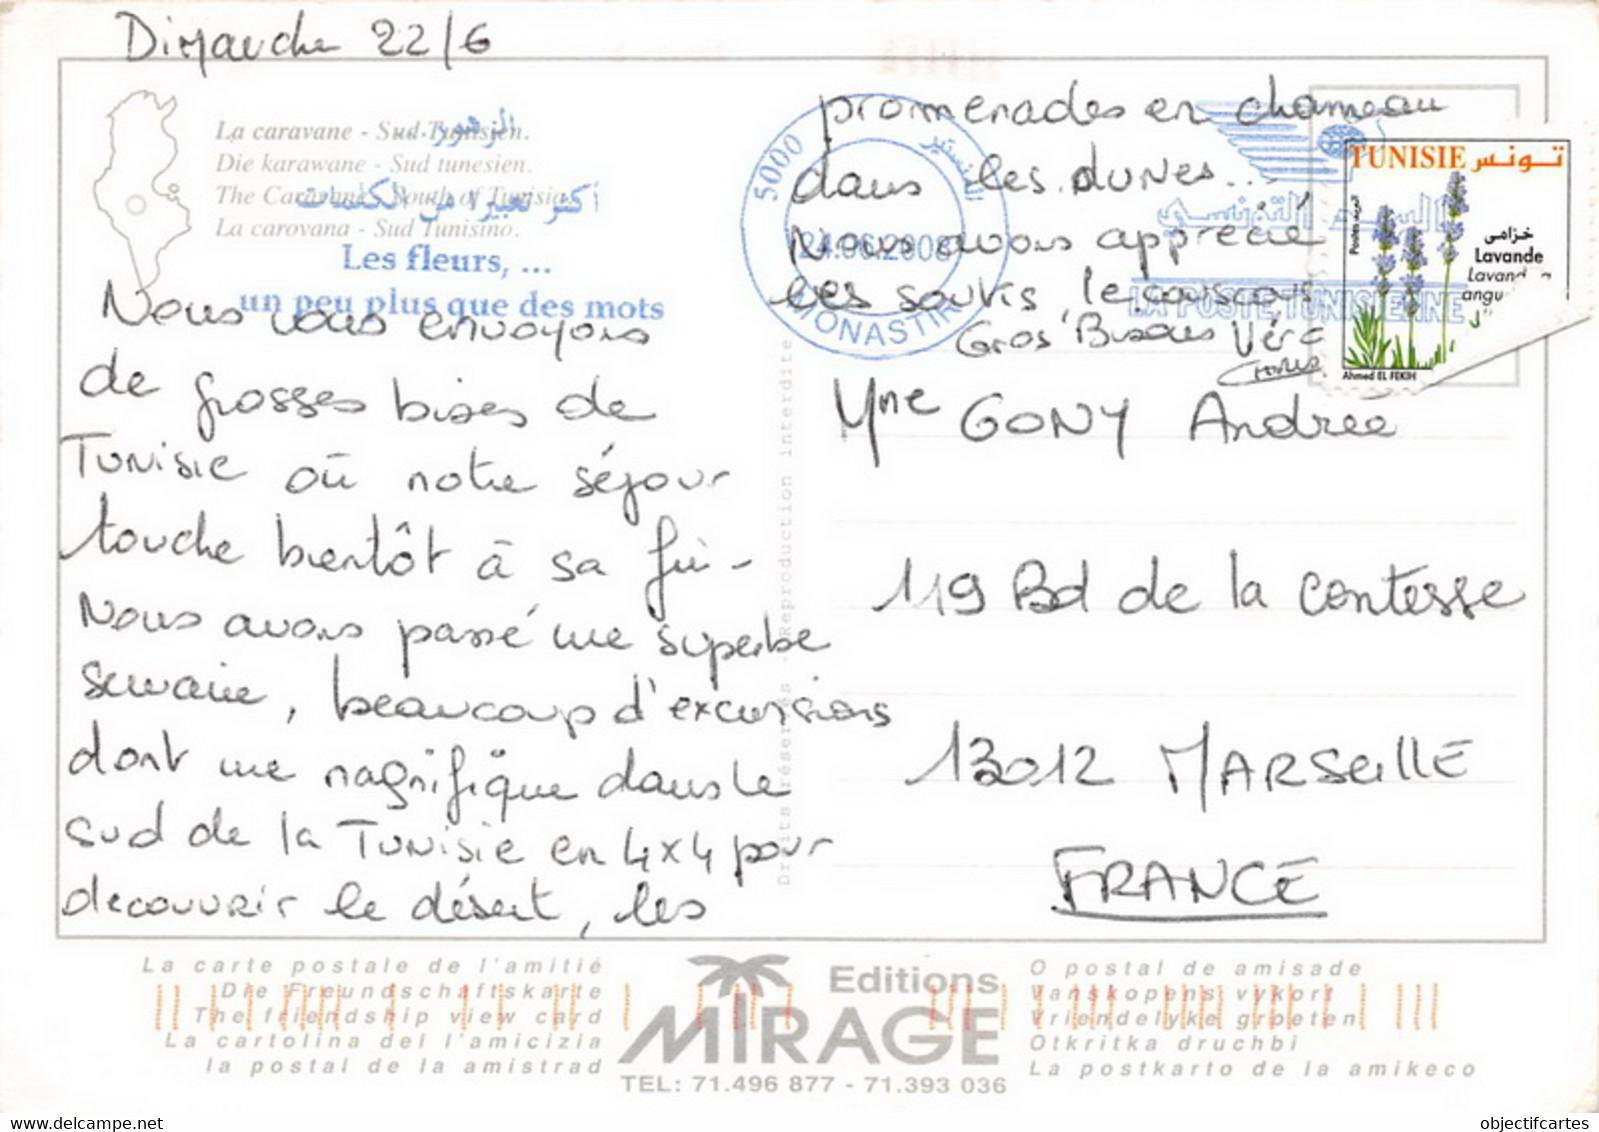 Dimanche 22/6
La caravane - Sud Tunisien.
Die karawane - Sud tunesien.
The Caravane - South of Tunisia.
La carovana - Sud Tunisino.
الزهور...
أكثر تعبيرا من الكلمات
Les fleurs, ...
un peu plus que des mots
Nous vous envoyons
de grosses bises de
Tunisie où notre séjour
touche bientôt à sa fin -
Nous avons passé une superbe
semaine, beaucoup d'excursions
dont une magnifique dans le
sud de la Tunisie en 4x4 pour
decouvrir le désert, les
promenades en chameau
dans les dunes...
Nous avons apprécié
les souks, le couscous
Gros Bisous Véro
5000
المنستير
24.06.2008
MONASTIR
البريد التونسي
LA POSTE TUNISIENNE
TUNISIE تونس
البريد Postes
خزامى
Lavande
Lavand
angu
Ahmed EL FEKIH
Mme GONY Andrée
119 Bd de la Contesse
13012 MARSEILLE
FRANCE
Droits réservés - Reproduction interdite
La carte postale de l'amitié
Die Freundschaftskarte
The friendship view card
La cartolina del l'amicizia
la postal de la amistrad
Editions
MIRAGE
TEL: 71.496 877 - 71.393 036
O postal de amisade
Vanskopens vykort
Vriendelyke groeten
Otkritka druchbi
La postkarto de la amikeco
11/12/2022
objectifcartes